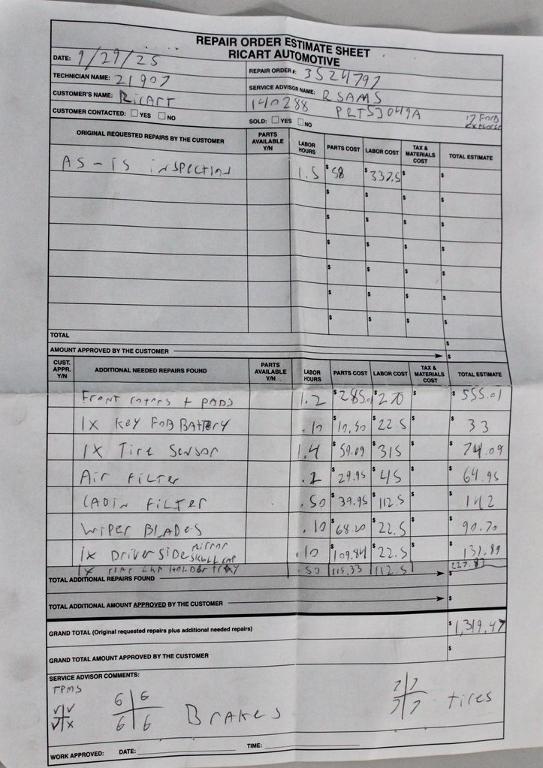 REPAIR ORDER ESTIMATE SHEET
RICART AUTOMOTIVE
DATE: 9/29/25 REPAIR ORDER #: 3524797
TECHNICIAN NAME: 21907 SERVICE ADVISOR NAME: RSAMS
CUSTOMER'S NAME: RICART 140288 PRTSJ049A
CUSTOMER CONTACTED: YES NO SOLD: YES NO
ORIGINAL REQUESTED REPAIRS BY THE CUSTOMER PARTS AVAILABLE Y/N LABOR HOURS PARTS COST LABOR COST TAX & MATERIALS COST TOTAL ESTIMATE
AS-IS INSPECTION 1.5 $58 $337.5 $ $
TOTAL $
AMOUNT APPROVED BY THE CUSTOMER $
CUST. APPR. Y/N ADDITIONAL NEEDED REPAIRS FOUND PARTS AVAILABLE Y/N LABOR HOURS PARTS COST LABOR COST TAX & MATERIALS COST TOTAL ESTIMATE
Front rotors + PADS 1.2 $285.01 $270 $ $555.01
1X Key FOB BATTERY .10 $10.50 $22.5 $ $33
1X Tire Sensor 1.4 $59.09 $315 $ $
Air Filter .2 $29.95 $45 $ $
CABIN FILTER .50 $39.95 $112.5 $ $
WIPER BLADES .10 $68.20 $22.5 $ $90.70
1X Driver side mirror skull cap .10 $109.84 $22.5 $
1X HOLDER TRAY .50 115.33 112.5 227.83
TOTAL ADDITIONAL REPAIRS FOUND $
TOTAL ADDITIONAL AMOUNT APPROVED BY THE CUSTOMER $
GRAND TOTAL (Original requested repairs plus additional needed repairs) $1,319.47
GRAND TOTAL AMOUNT APPROVED BY THE CUSTOMER $
SERVICE ADVISOR COMMENTS:
TPMS
6 6 7 7
6 6 BRAKES 7 7 tires
WORK APPROVED: DATE: TIME: